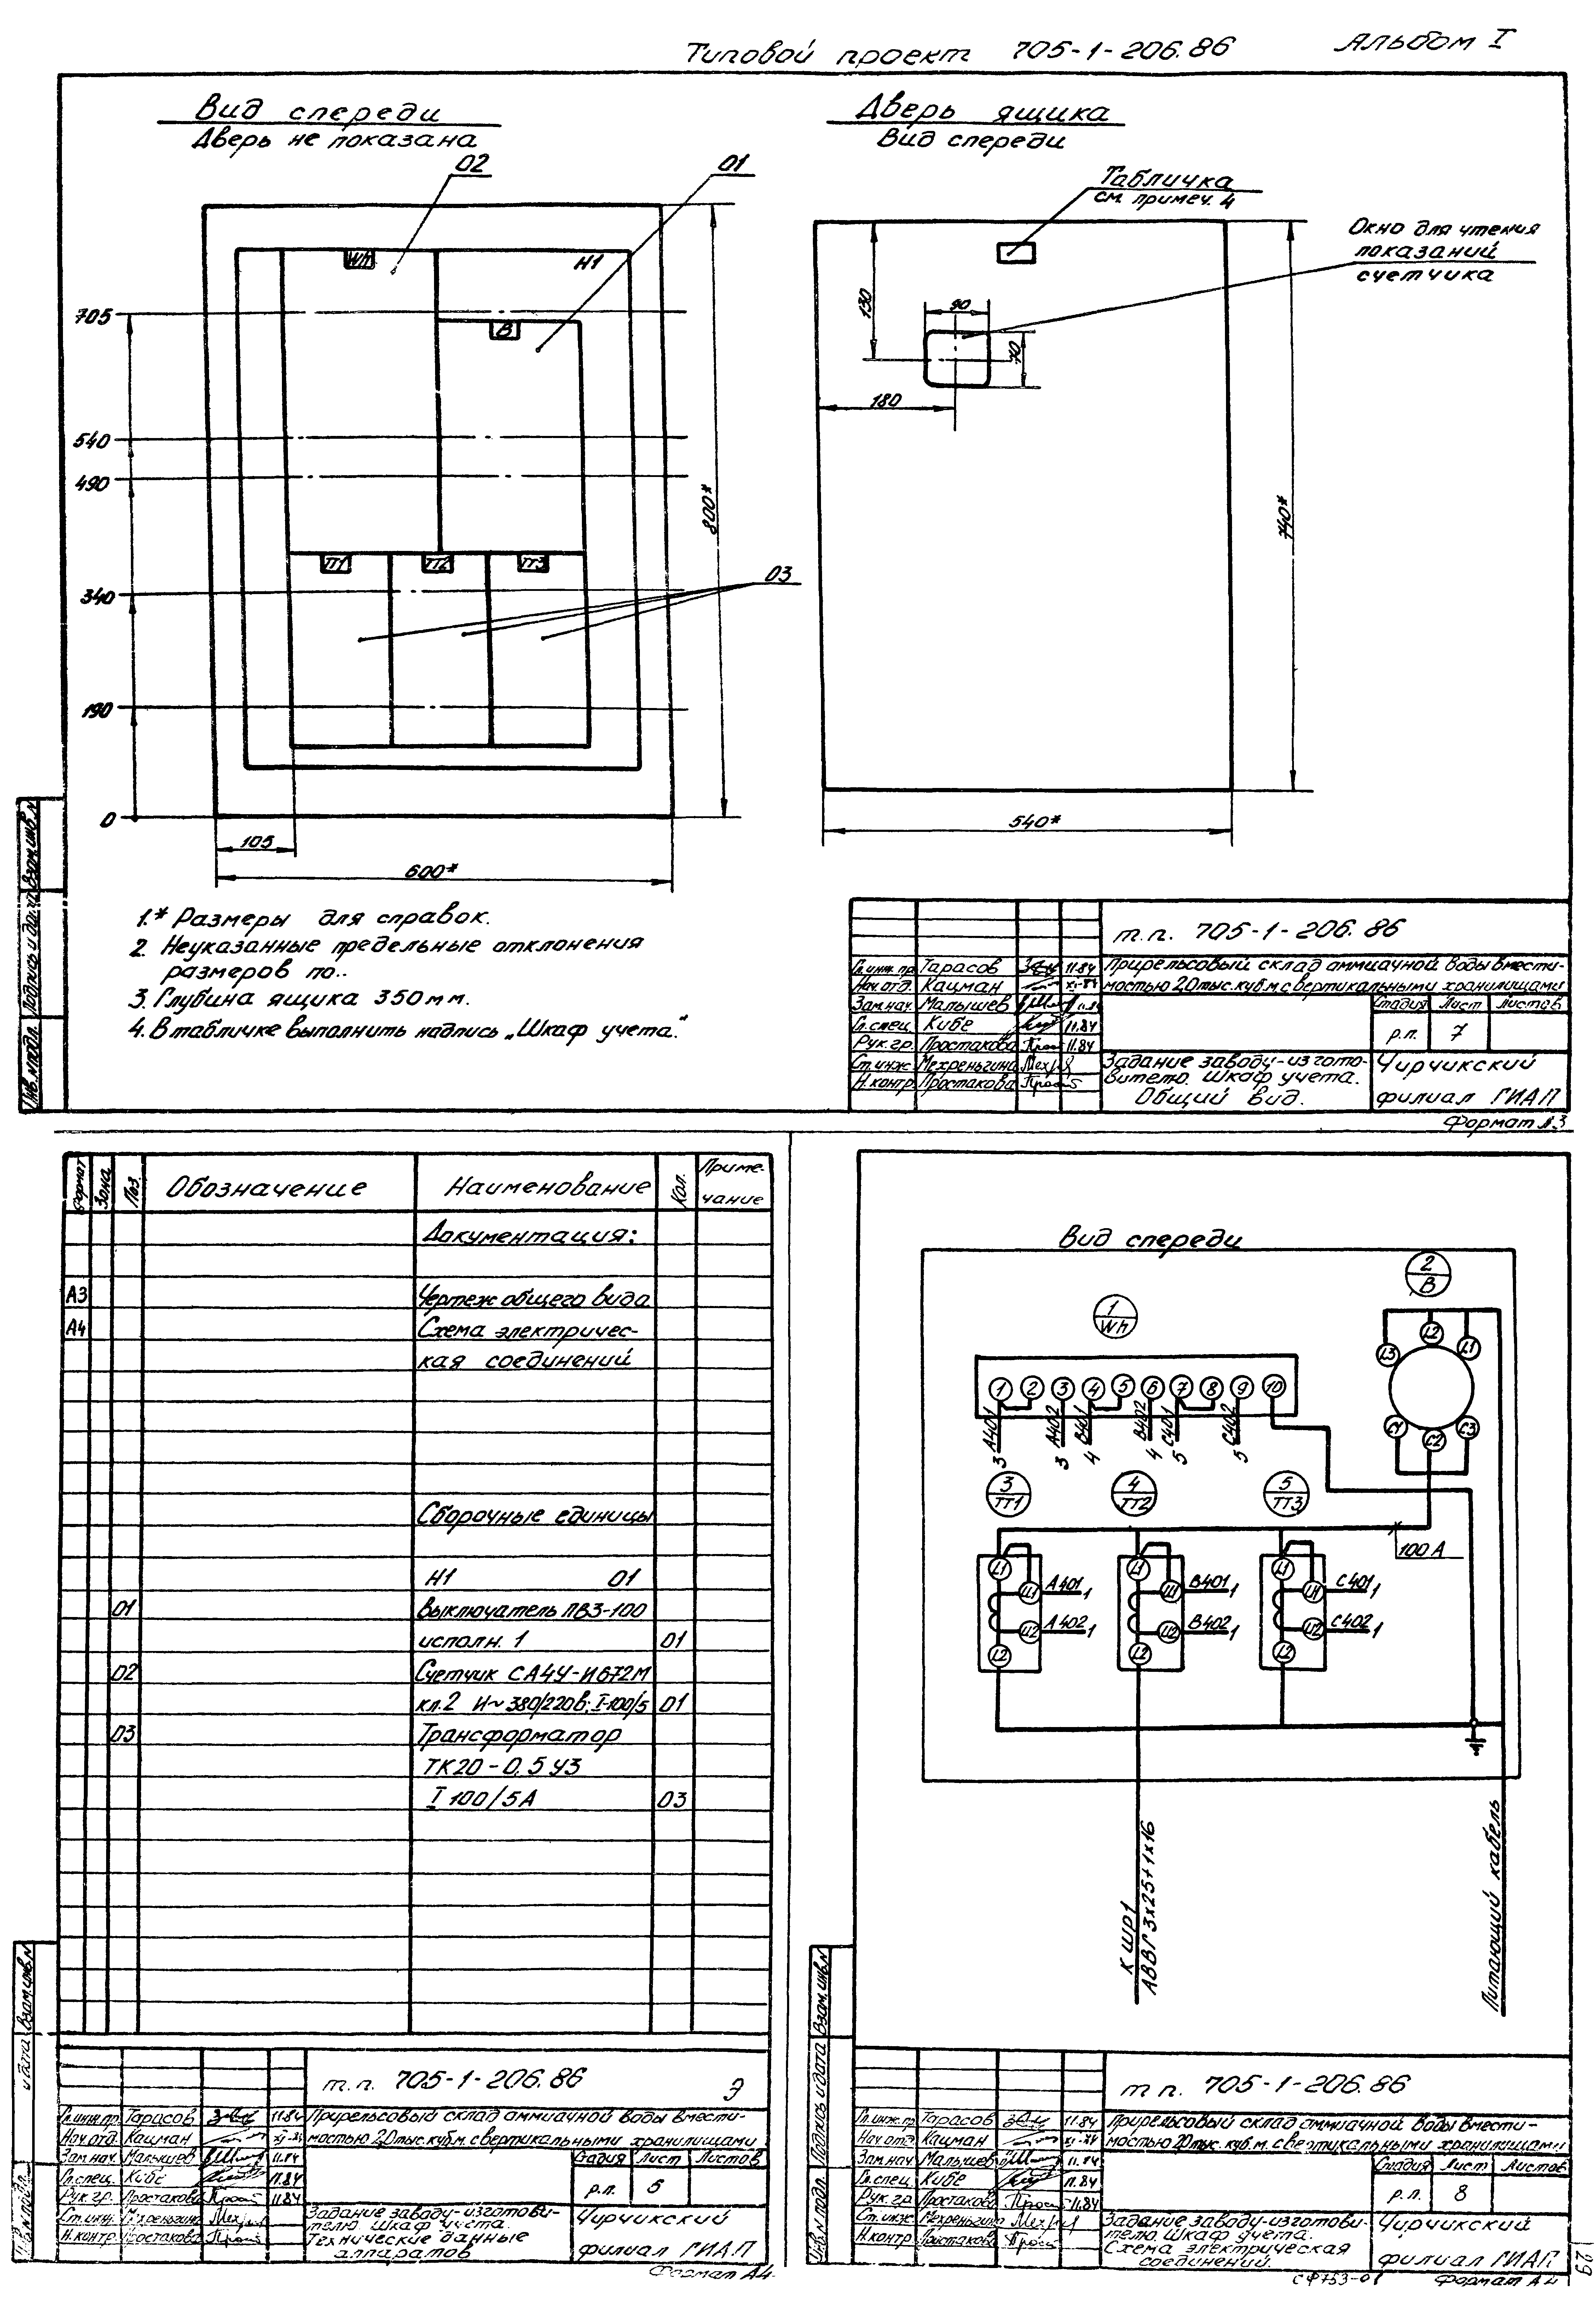 Типовой проект 705-1-206.86 Альбом I
Вид спереди
Дверь не показана
02
01
Wh
H1
В
705
540
490
340
190
0
ТТ1
ТТ2
ТТ3
03
800*
105
600*
Дверь ящика
Вид спереди
Табличка
см. примеч. 4
Окно для чтения
показаний
счетчика
130
90
70
180
740*
540*
1.* Размеры для справок.
2. Неуказанные предельные отклонения
размеров по..
3. Глубина ящика 350мм.
4. В табличке выполнить надпись „Шкаф учета."
Инв.N подл.
Подпись и дата
Взам.инв.N
т.п. 705-1-206.86
Гл.инж.пр. Тарасов 11.84
Нач.отд. Кацман XI-84
Зам.нач. Малышев 11.84
Гл.спец. Кибе 11.84
Рук.гр. Простакова 11.84
Ст.инж. Мехреньгина
Н.контр. Простакова
Прирельсовый склад аммиачной воды вмести-
мостью 2,0 тыс.куб.м. с вертикальными хранилищами
Стадия Лист Листов
р.п. 7
Задание заводу-изгото-
вителю. Шкаф учета.
Общий вид.
Чирчикский
филиал ГИАП
Формат А3
Формат Зона Поз. Обозначение Наименование Кол. Приме-
чание
Документация:
А3 Чертеж общего вида
А4 Схема электричес-
кая соединений
Сборочные единицы
Н1 01
01 Выключатель ПВ3-100
исполн. 1 01
02 Счетчик СА4У-И672М
кл.2 И~380/220в; I-100/5 01
03 Трансформатор
ТК20-0,5 У3
I 100/5А 03
и дата
Взам.инв.N
т.п. 705-1-206.86
Э
Гл.инж.пр. Тарасов 11.84
Нач.отд. Кацман XI-84
Зам.нач. Малышев 11.84
Гл.спец. Кибе 11.84
Рук.гр. Простакова 11.84
Ст.инж. Мехреньгина
Н.контр. Простакова
Прирельсовый склад аммиачной воды вмести-
мостью 2,0 тыс.куб.м. с вертикальными хранилищами
Стадия Лист Листов
р.п. 5
Задание заводу-изготови-
телю. Шкаф учета.
Технические данные
аппаратов
Чирчикский
филиал ГИАП
Формат А4
Вид спереди
2
В
1
Wh
L3 L2 L1
1 2 3 4 5 6 7 8 9 10
А401 А402 В401 В402 С401 С402
3 3 4 4 5 5
С1 С2 С3
3
ТТ1
4
ТТ2
5
ТТ3
100 А
L1 И1 А401 1
L1 И1 В401 1
L1 И1 С401 1
И2 А402 1
И2 В402 1
И2 С402 1
L2 L2 L2
К шр1
АВВГ 3х25+1х16
Питающий кабель
Инв.N подл.
Подпись и дата
Взам.инв.N
т.п. 705-1-206.86
Гл.инж.пр. Тарасов 11.84
Нач.отд. Кацман XI-84
Зам.нач. Малышев 11.84
Гл.спец. Кибе 11.84
Рук.гр. Простакова 11.84
Ст.инж. Мехреньгина
Н.контр. Простакова
Прирельсовый склад аммиачной воды вмести-
мостью 2,0 тыс.куб.м. с вертикальными хранилищами
Стадия Лист Листов
р.п. 8
Задание заводу-изготови-
телю. Шкаф учета.
Схема электрическая
соединений.
Чирчикский
филиал ГИАП
Формат А4
29